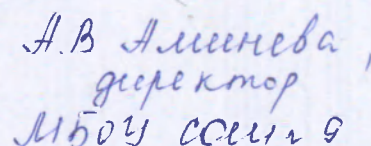 А.В Аминева,
директор
МБОУ СОШ № 9